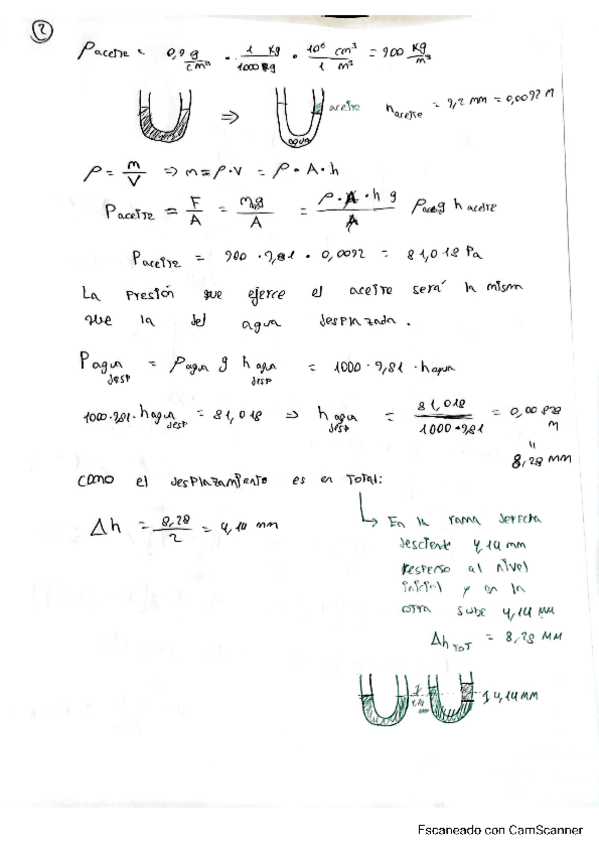 2
ρaceite = 0,9 g/cm³ · 1 kg/1000 g · 10⁶ cm³/1 m³ = 900 kg/m³
⇒ aceite haceite = 9,2 mm = 0,0092 m
agua
ρ = m/V ⇒ m = ρ·V = ρ·A·h
Paceite = F/A = m·g/A = ρ·A·h g/A ρace g haceite
Paceite = 900 · 9,81 · 0,0092 = 81,018 Pa
La presión que ejerce el aceite será la misma
que la del agua desplazada.
Pagua desp = ρagua g hagua desp = 1000 · 9,81 · hagua
1000·9,81·hagua desp = 81,018 ⇒ hagua desp = 81,018/1000·9,81 = 0,00828 m
"
8,28 mm
como el desplazamiento es en total:
Δh = 8,28/2 = 4,14 mm
↳ En la rama derecha
desciende 4,14 mm
respecto al nivel
inicial y en la
otra sube 4,14 mm
ΔhTOT = 8,28 mm
4,14 mm
Escaneado con CamScanner